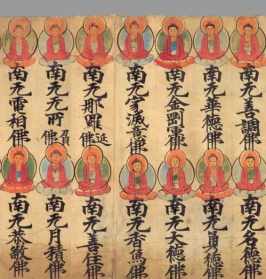 南无善調佛
南无華德佛
南无金剛軍佛
南无滅喜佛
南无那羅延佛
南无无所佛
南无雷相佛
南无名德佛
南无德佛
南无大德佛
南无香佛
南无善住佛
南无月積佛
南无恭敬佛